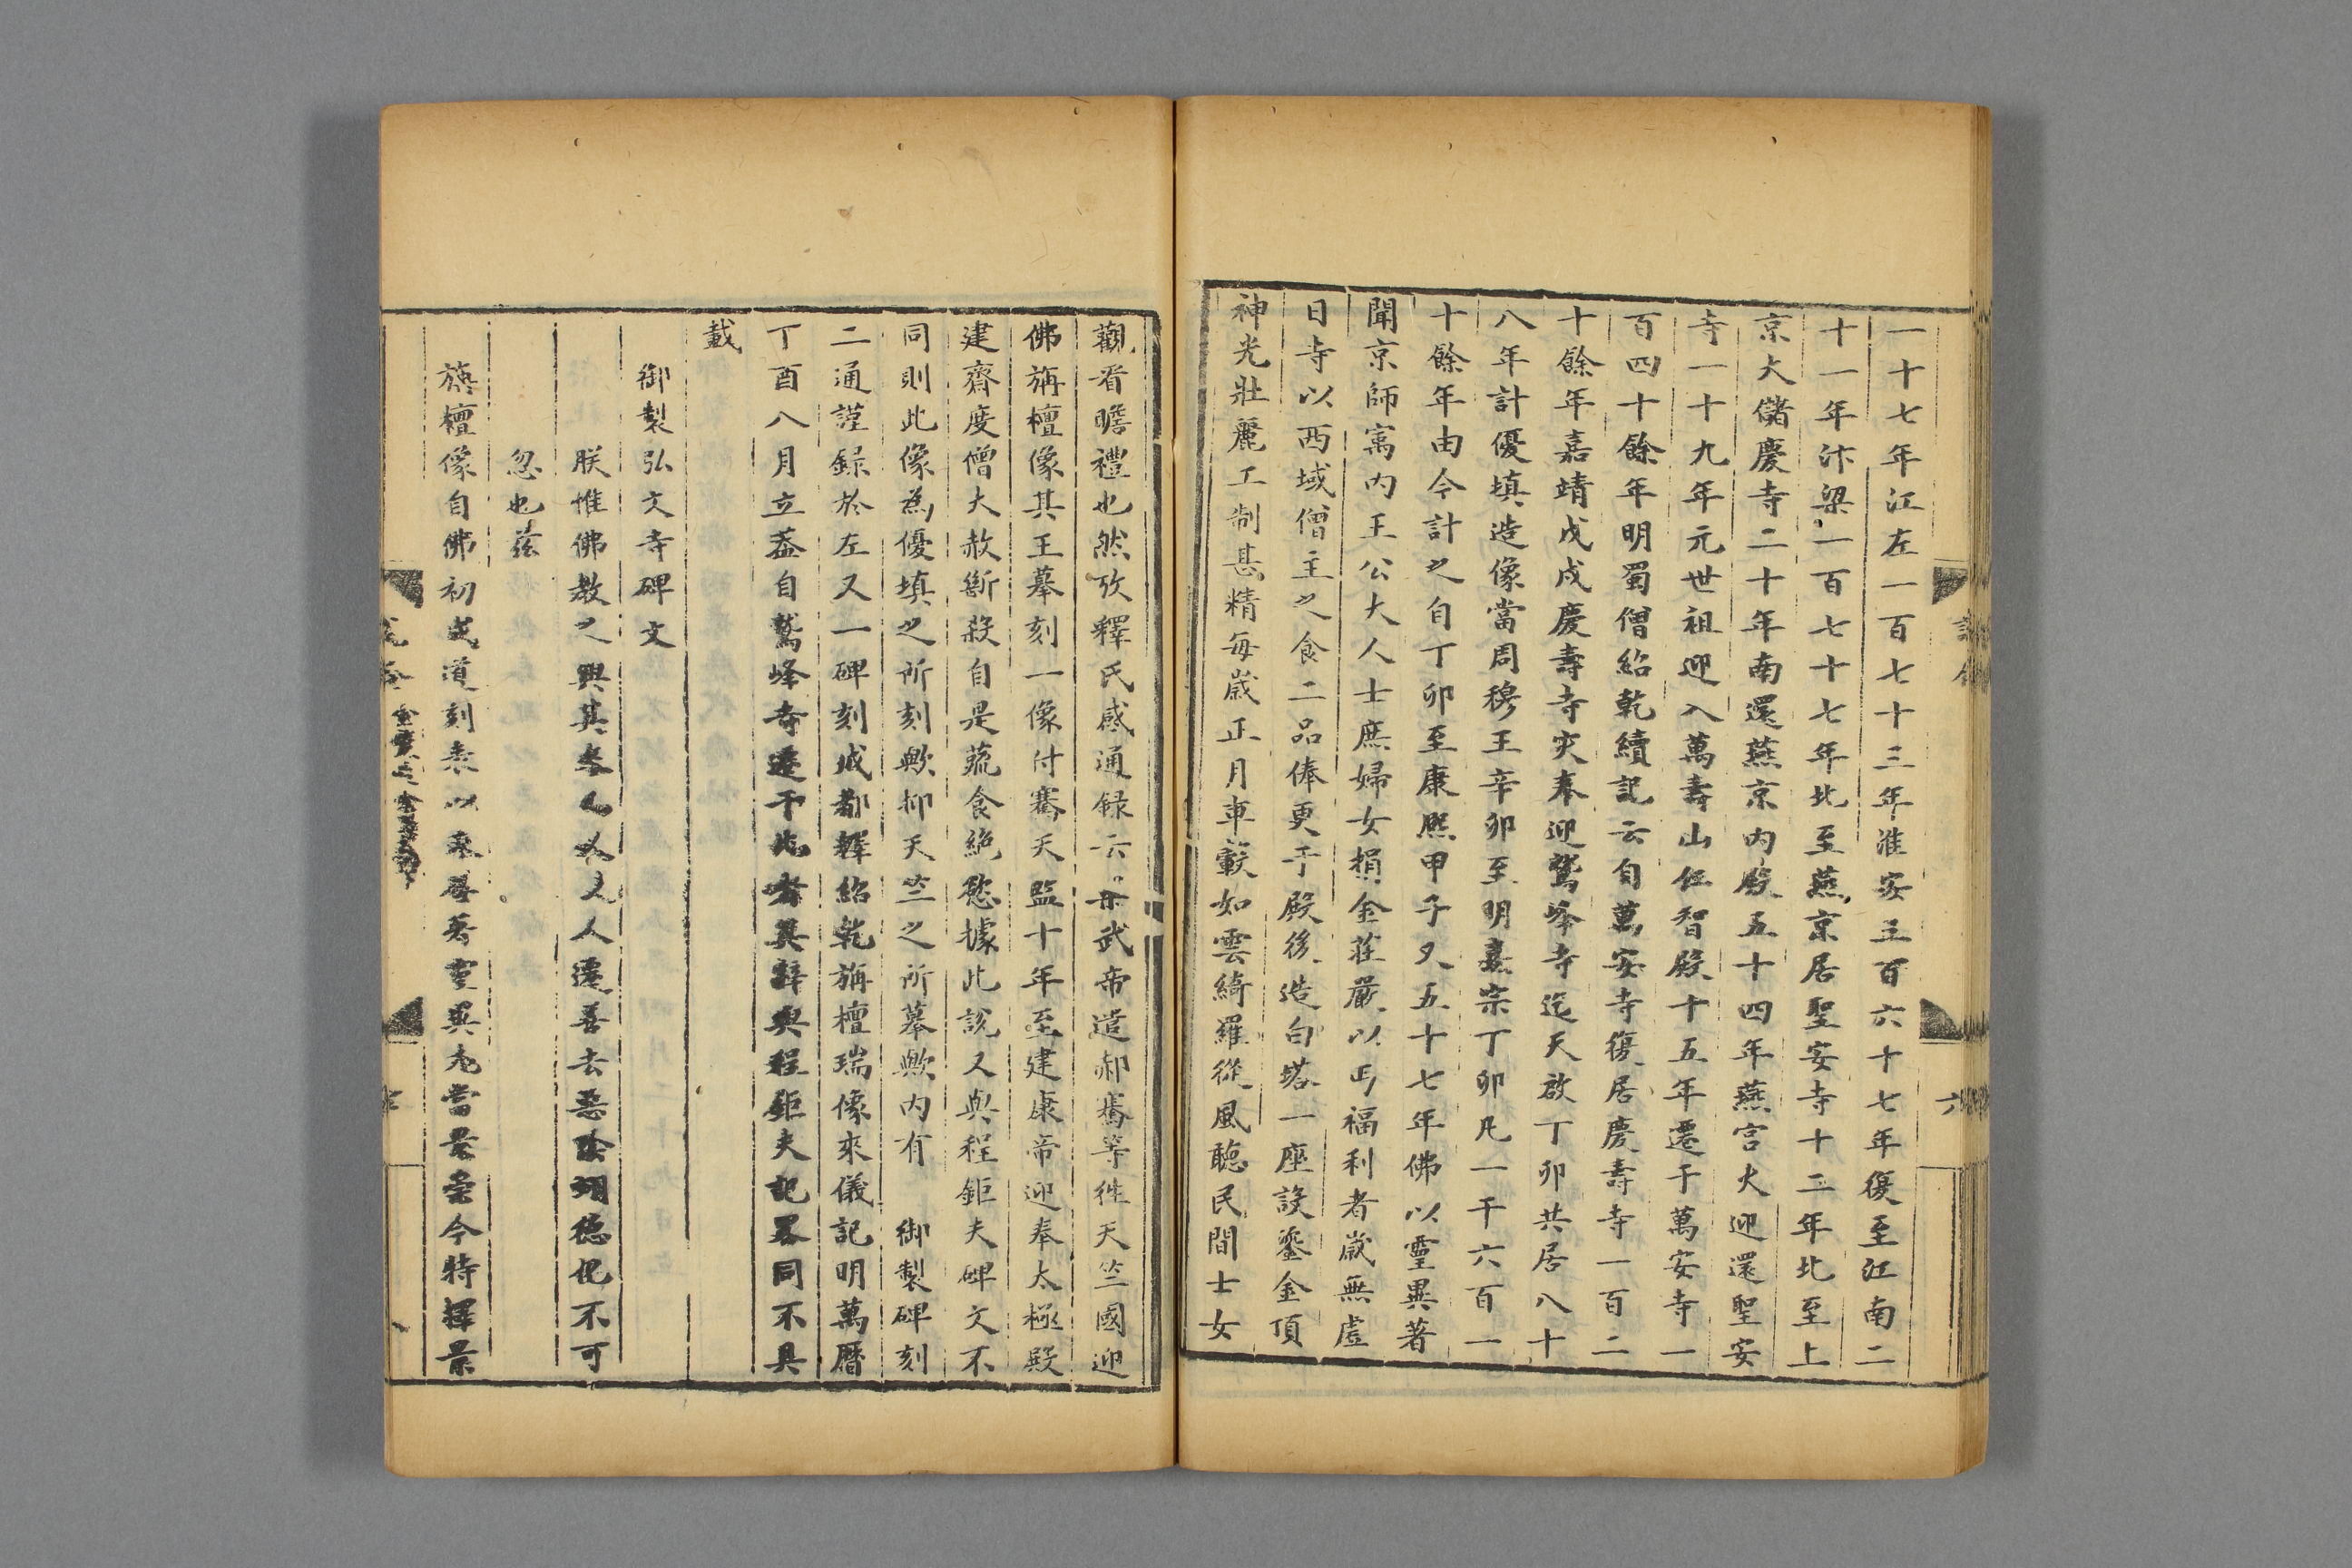 一十七年江左一百七十三年淮安三百六十七年復至江南二
十一年汴梁一百七十七年北至燕京居聖安寺十二年北至上
京大儲慶寺二十年南還燕京内殿五十四年燕宮火迎還聖安
寺一十九年元世祖迎入萬壽山仁智殿十五年遷于萬安寺一
百四十餘年明蜀僧紹乾續記云自萬安寺復居慶壽寺一百二
十餘年嘉靖戊戌慶壽寺灾奉迎鷲峰寺迄天啟丁卯共居八十
八年計優填造像當周穆王辛卯至明熹宗丁卯凡一千六百一
十餘年由今計之自丁卯至康熙甲子又五十七年佛以靈異著
聞京師寓内王公大人士庶婦女捐金莊嚴以丐福利者歲無虛
日寺以西域僧主之食二品俸更于殿後造白塔一座設鎏金頂
神光壯麗工制甚精每歲正月車轂如雲綺羅從風聽民間士女
觀看瞻禮也然攷釋氏感通録云梁武帝遣郝騫等徃天竺國迎
佛旃檀像其王摹刻一像付騫天監十年至建康帝迎奉太極殿
建齋度僧大赦斷殺自是蔬食絶慾據此說又與程鉅夫碑文不
同則此像爲優填之所刻歟抑天竺之所摹歟内有　御製碑刻
二通謹録於左又一碑刻城都釋紹乾旃檀瑞像來儀記明萬曆
丁酉八月立葢自鷲峰寺遷于此者其辭與程鉅夫記畧同不具
載
御製弘文寺碑文
朕惟佛教之興其來人人遷善去惡陰翊德化不可
忽也茲
旃檀像自佛初成道刻表以來屢著靈異尤當景崇今特擇景